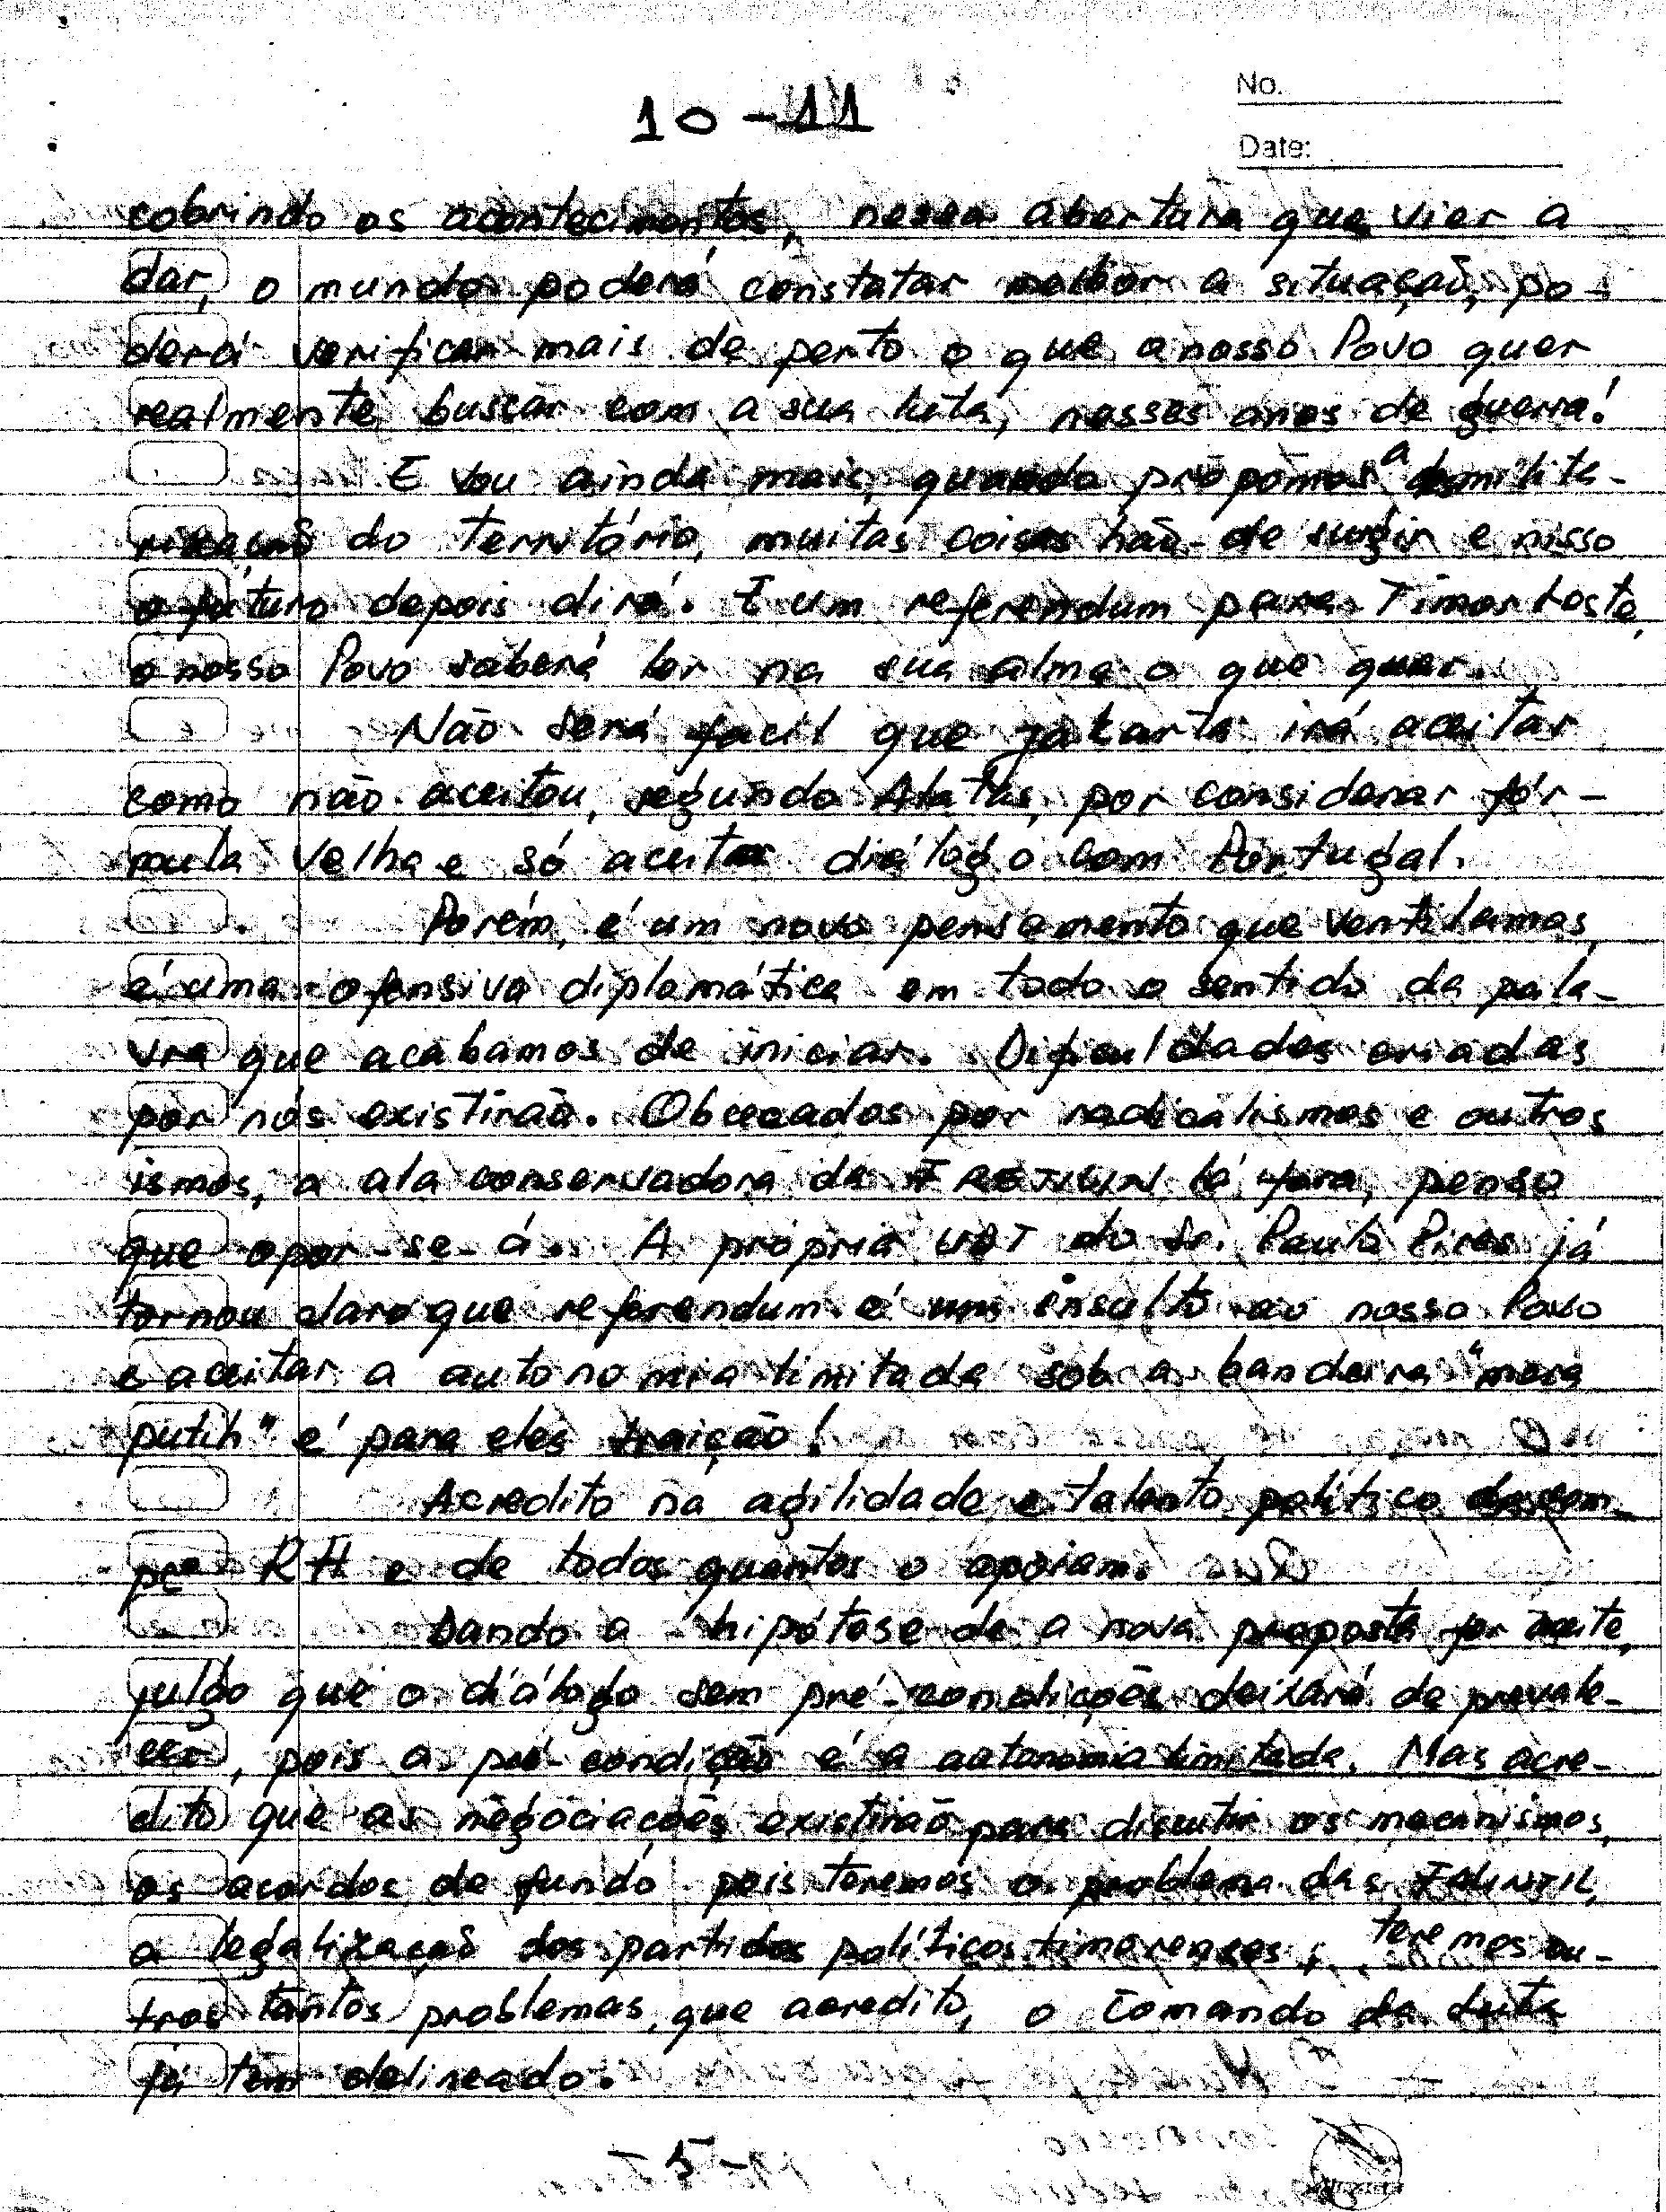 No.
10-11
Date:
cobrindo os acontecimentos, nessa abertura que vier a
dar, o mundo poderá constatar melhor a situação, po-
derá verificar mais de perto o que o nosso Povo quer
realmente buscar com a sua luta, nesses anos de guerra!
E vou ainda mais, quando propomos a desmilita-
rização do território, muitas coisas hão-de surgir e nisso
o futuro depois dirá. E um referendum para Timor Leste,
o nosso Povo saberá ler na sua alma o que quer.
Não será facil que Jakarta irá aceitar
como não aceitou, segundo Alatas, por considerar fór-
mula velha e só aceitar diálogo com Portugal.
Porém, é um novo pensamento que ventilamos,
é uma ofensiva diplomática em todo o sentido da pala-
vra que acabamos de iniciar. Dificuldades criadas
por nós existirão. Obcecados por radicalismos e outros
ismos, a ala conservadora da FRETILIN lá fora, penso
que opor-se-á. A própria UDT do Sr. Paulo Pires já
tornou claro que referendum é um insulto ao nosso Povo
e aceitar a autonomia limitada sob a bandeira "mera
putih" é para eles traição!
Acredito na agilidade e talento político de sem-
pre RH e de todos quantos o apoiam.
Dando a hipótese de a nova proposta for aceite,
julgo que o diálogo sem pré-condições deixará de prevale-
cer, pois a pré-condição é a autonomia limitada. Mas acre-
dito que as negociações existirão para discutir os mecanismos,
os acordos de fundo pois teremos o problema das FALINTIL,
a legalização dos partidos políticos timorenses; teremos ou-
tros tantos problemas, que acredito, o Comando da Luta
já tem delineado.
-5-